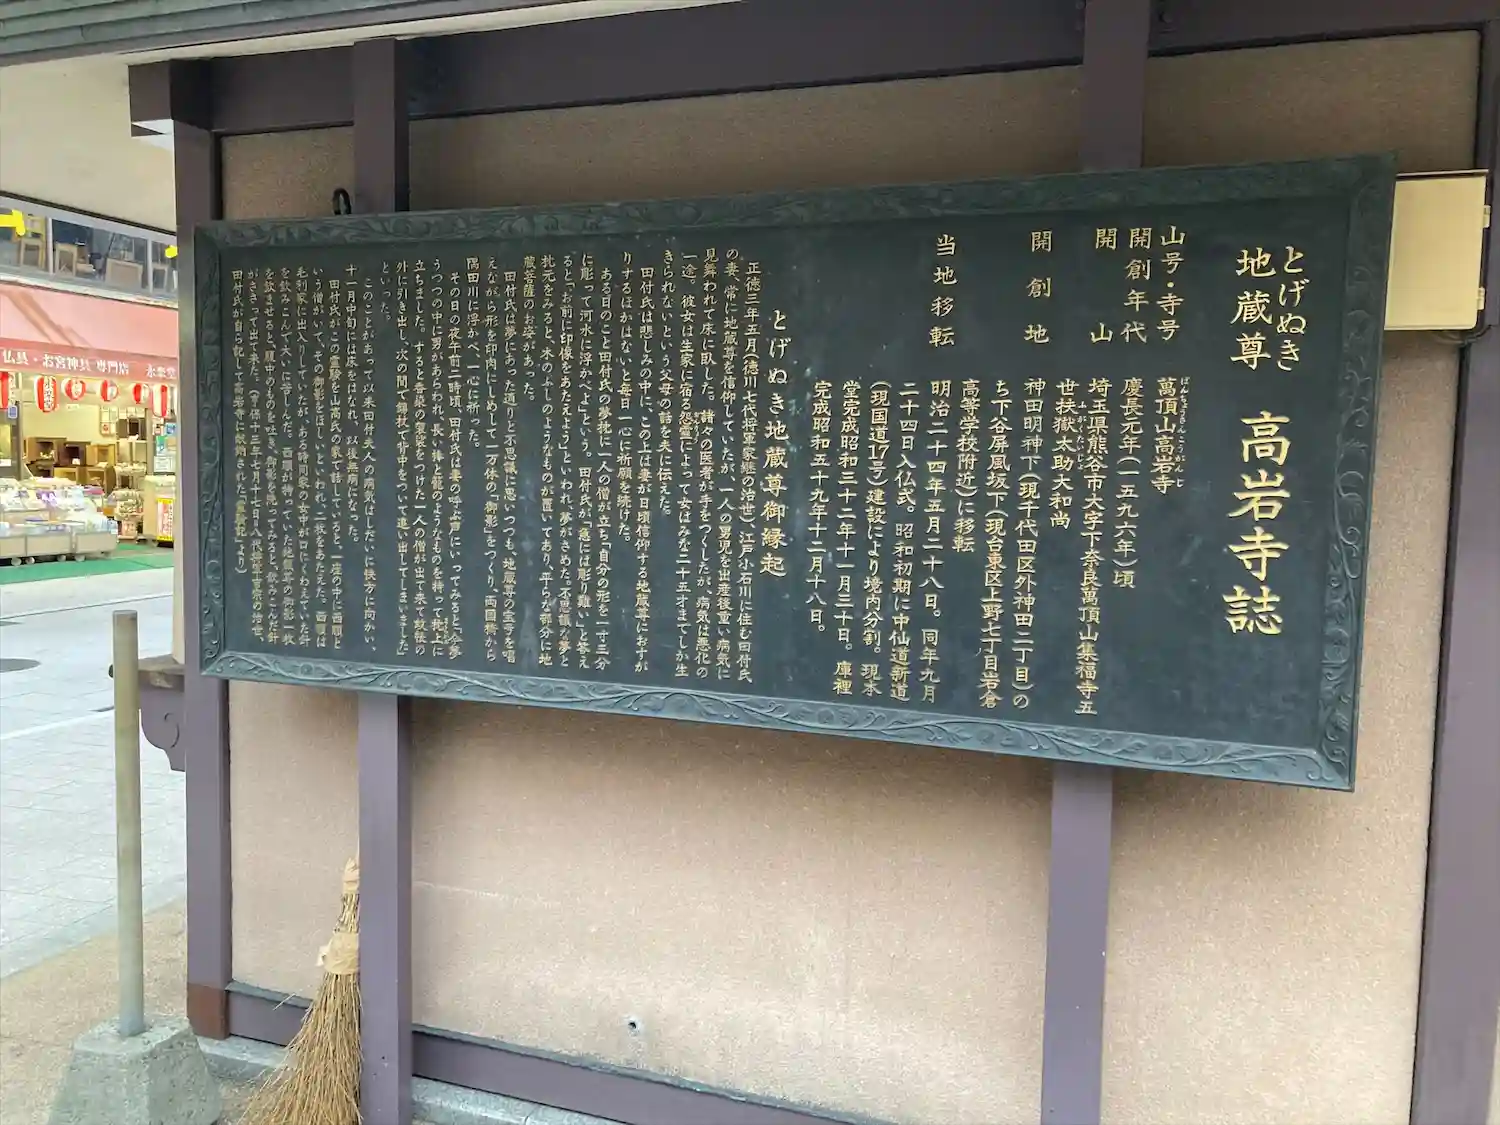 とげぬき
地蔵尊
高岩寺誌
山号・寺号
萬頂山高岩寺
ばんちょうざんこうがんじ
開創年代
慶長元年(一五九六年)頃
開山
埼玉県熊谷市大字下奈良萬頂山集福寺五
世扶嶽太助大和尚
ふがくたいじょ
開創地
神田明神下(現千代田区外神田二丁目)の
ち下谷屏風坂下(現台東区上野七丁目岩倉
高等学校附近)に移転
当地移転
明治二十四年五月二十八日。同年九月
二十四日入仏式。昭和初期に中仙道新道
(現国道17号)建設により境内分割。現本
堂完成昭和三十二年十一月三十日。庫裡
完成昭和五十九年十二月十八日。
とげぬき地蔵尊御縁起
正徳三年五月(徳川七代将軍家継の治世)、江戸小石川に住む田付氏
の妻、常に地蔵尊を信仰していたが、一人の男児を出産後重い病気に
見舞われて床に臥した。諸々の医者が手をつくしたが、病気は悪化の
一途。彼女は生家に宿る怨霊によって女はみな二十五才までしか生
おんりょう
きられないという父母の話を夫に伝えた。
田付氏は悲しみの中に、この上は妻が日頃信仰する地蔵尊におすが
りするほかはないと毎日一心に祈願を続けた。
ある日のこと田付氏の夢枕に一人の僧が立ち「自分の形を一寸三分
に彫って河水に浮かべよ」という。田付氏が「急には彫り難い」と答え
ると「お前に印像をあたえよう」といわれ夢がさめた。不思議な夢と
枕元をみると、木のふしのようなものが置いてあり、平らな部分に地
蔵菩薩のお姿があった。
田付氏は夢にあった通りと不思議に思いつつも、地蔵尊の宝号を唱
えながら形を印肉にしめして一万体の「御影」をつくり、両国橋から
隅田川に浮かべ、一心に祈った。
その日の夜午前二時頃、田付氏は妻の呼ぶ声にいってみると「今夢
うつつの中に男があらわれ、長い棒と籠のようなものを持って枕上に
立ちました。すると香染の袈裟をつけた一人の僧が出て来て敵怪の
外に引き出し、次の間で錫杖で背中をついて追い出してしまいました」
といった。
このことがあって以来田付夫人の病気はしだいに快方に向かい、
十一月中旬には床をはなれ、以後無病になった。
田付氏がこの霊験を山高氏の家で話していると、一座の中に西順と
いう僧がいて、その御影をほしいといわれ、二枚をあたえた。西順は
毛利家に出入りしていたが、ある時同家の女中が口にくわえていた針
を飲みこんで大いに苦しんだ。西順が持っていた地蔵尊の御影一枚
を飲ませると、腹中のものを吐き、御影を洗ってみると、飲みこんだ針
がささって出て来た。(享保十三年七月十七日八代将軍吉宗の治世、
田付氏が自ら記して高岩寺に献納された「霊験記」より)